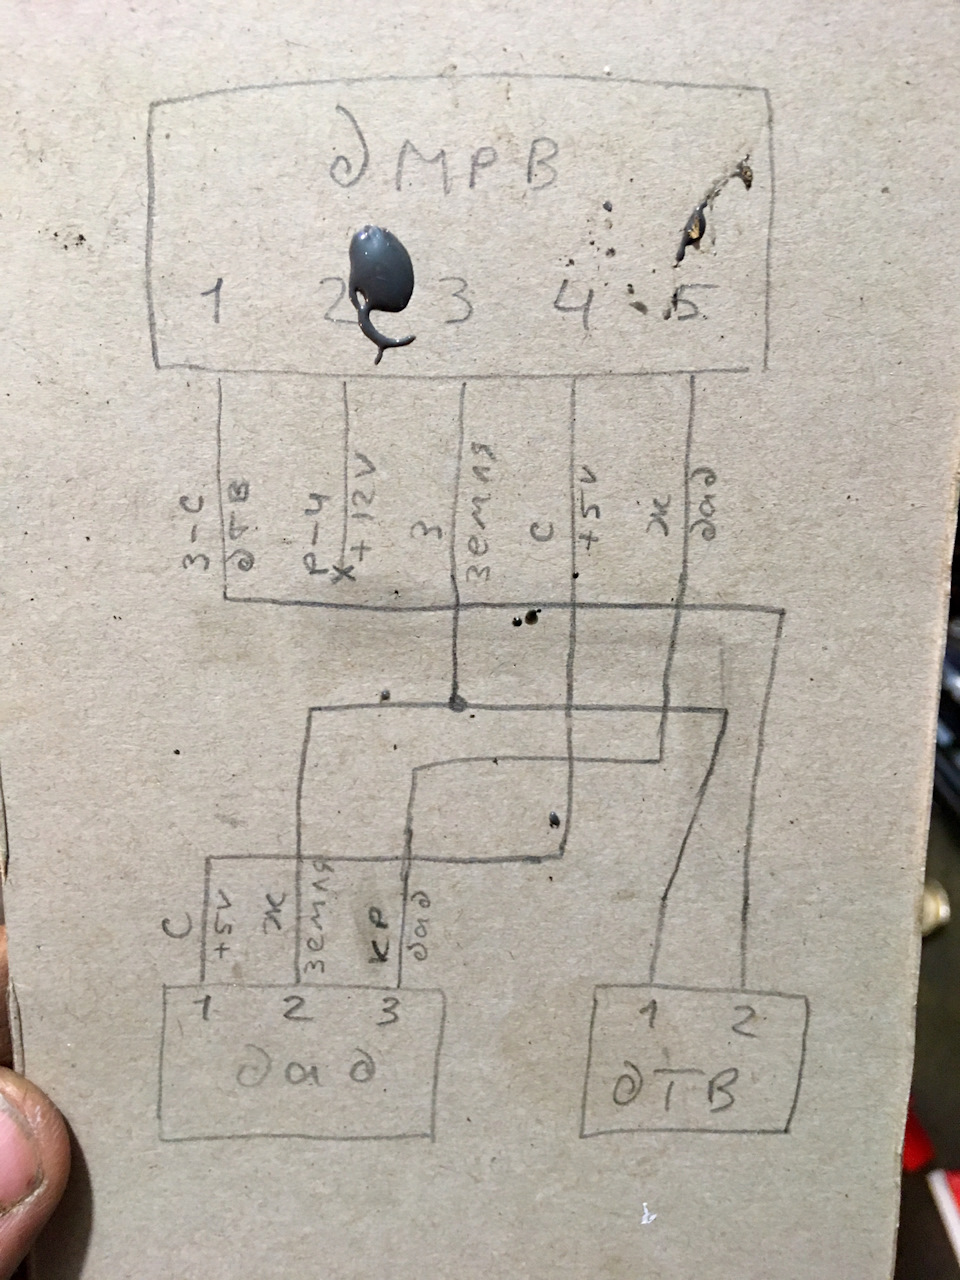 ДМРВ
1 2 3 4 5
З-С
ДТВ
Р-Ч
+12V
З
Земля
С
+5V
Ж
дад
С
+5V
Ж
Земля
КР
дад
1 2 3
дад
1 2
ДТВ